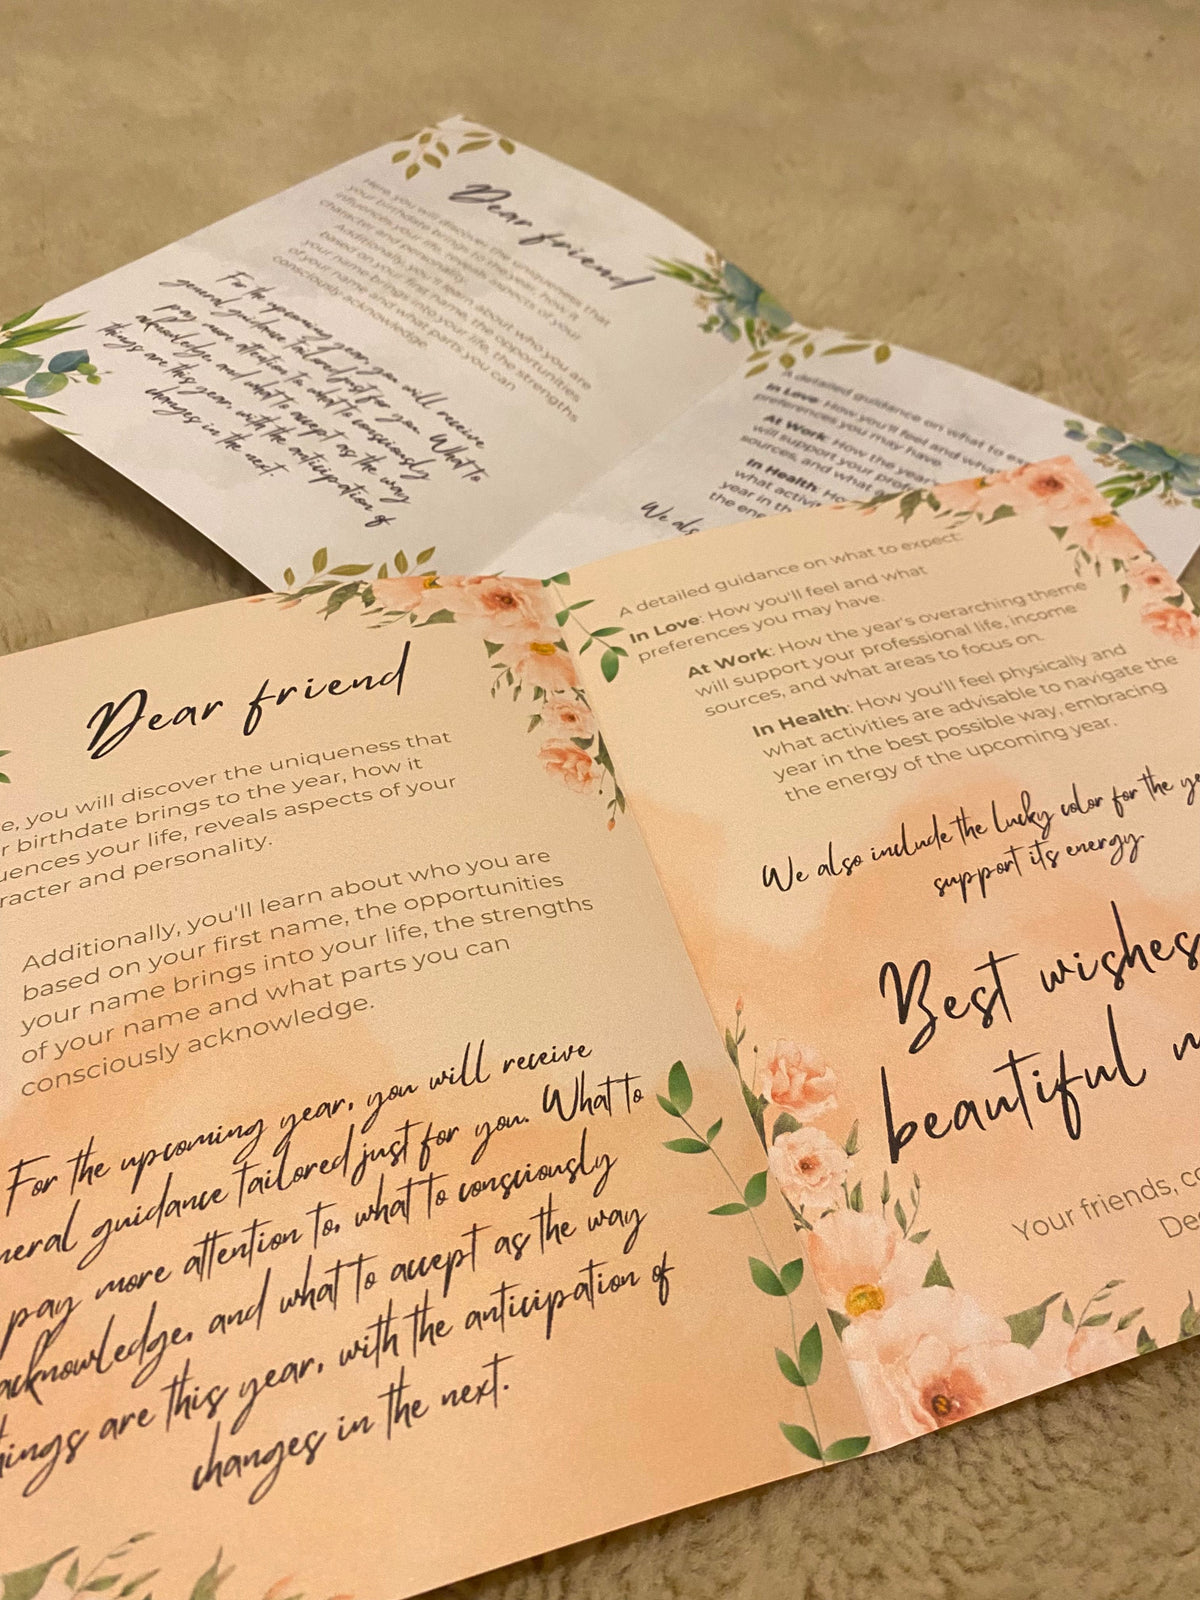 Dear friend
Here, you will discover the uniqueness that
your birthdate brings to the year, how it
influences your life, reveals aspects of your
character and personality.
Additionally, you'll learn about who you are
based on your first name, the opportunities
your name brings into your life, the strengths
of your name and what parts you can
consciously acknowledge
For the upcoming year, you will receive
general guidance tailored just for you. What to
pay more attention to, what to consciously
acknowledge, and what to accept as the way
things are this year, with the anticipation of
changes in the next.
A detailed guidance on what to ex
In Love: How you'll feel and what
preferences you may have.
At Work: How the year's
will support your profe
sources, and what a
In Health: Ho
what activi
year in th
the ene
We als
Dear friend
e, you will discover the uniqueness that
r birthdate brings to the year, how it
uences your life, reveals aspects of your
racter and personality.
Additionally, you'll learn about who you are
based on your first name, the opportunities
your name brings into your life, the strengths
of your name and what parts you can
consciously acknowledge.
For the upcoming year, you will receive
neral guidance tailored just for you. What to
pay more attention to, what to consciously
acknowledge, and what to accept as the way
hings are this year, with the anticipation of
changes in the next.
A detailed guidance on what to expect:
In Love: How you'll feel and what
preferences you may have.
At Work: How the year's overarching theme
will support your professional life, income
sources, and what areas to focus on.
In Health: How you'll feel physically and
what activities are advisable to navigate the
year in the best possible way, embracing
the energy of the upcoming year.
We also include the lucky color for the ye
support its energy.
Best wishes
beautiful
Your friends, co
Des